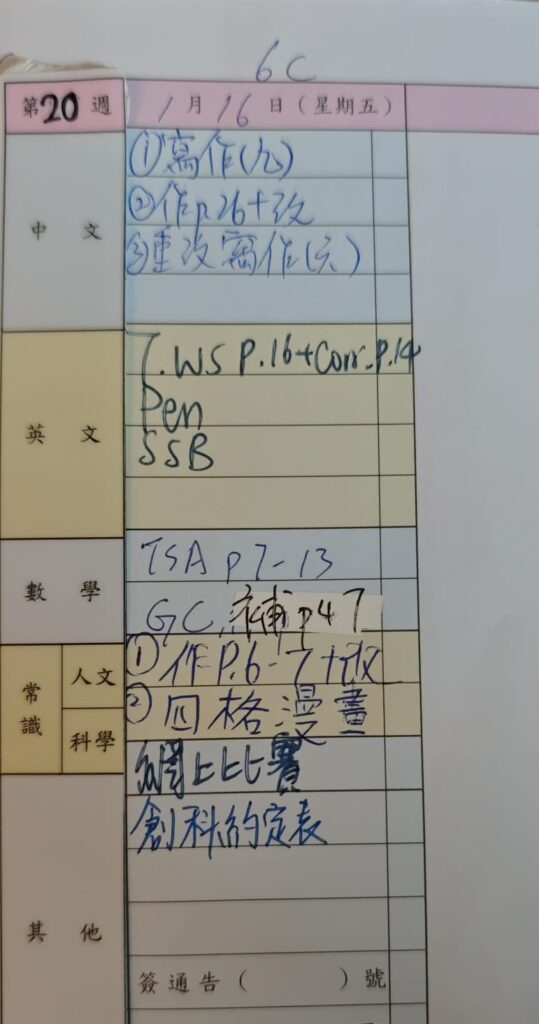 6C
第20週 1月16日(星期五)
中文
①寫作(九)
②作p.26+改
③重改寫作(六)
英文
T.WS P.16+Corr.P.14
Pen
SSB
數學
TSA p7-13
GC 補p47
常識 人文 科學
①作P.6-7+改
②四格漫畫
其他
網上比賽
創科約定表
簽通告( )號